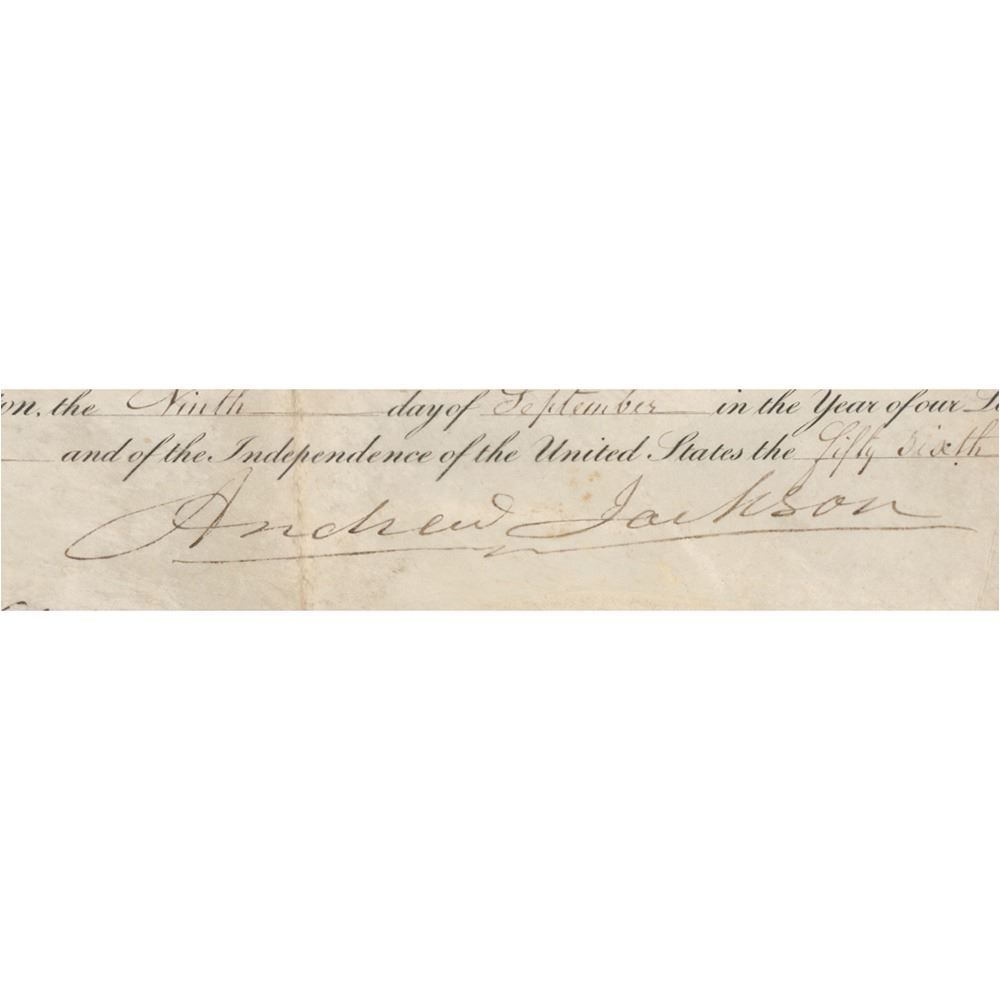 on, the Ninth day of September in the Year of our
and of the Independence of the United States the fifty sixth
Andrew Jackson